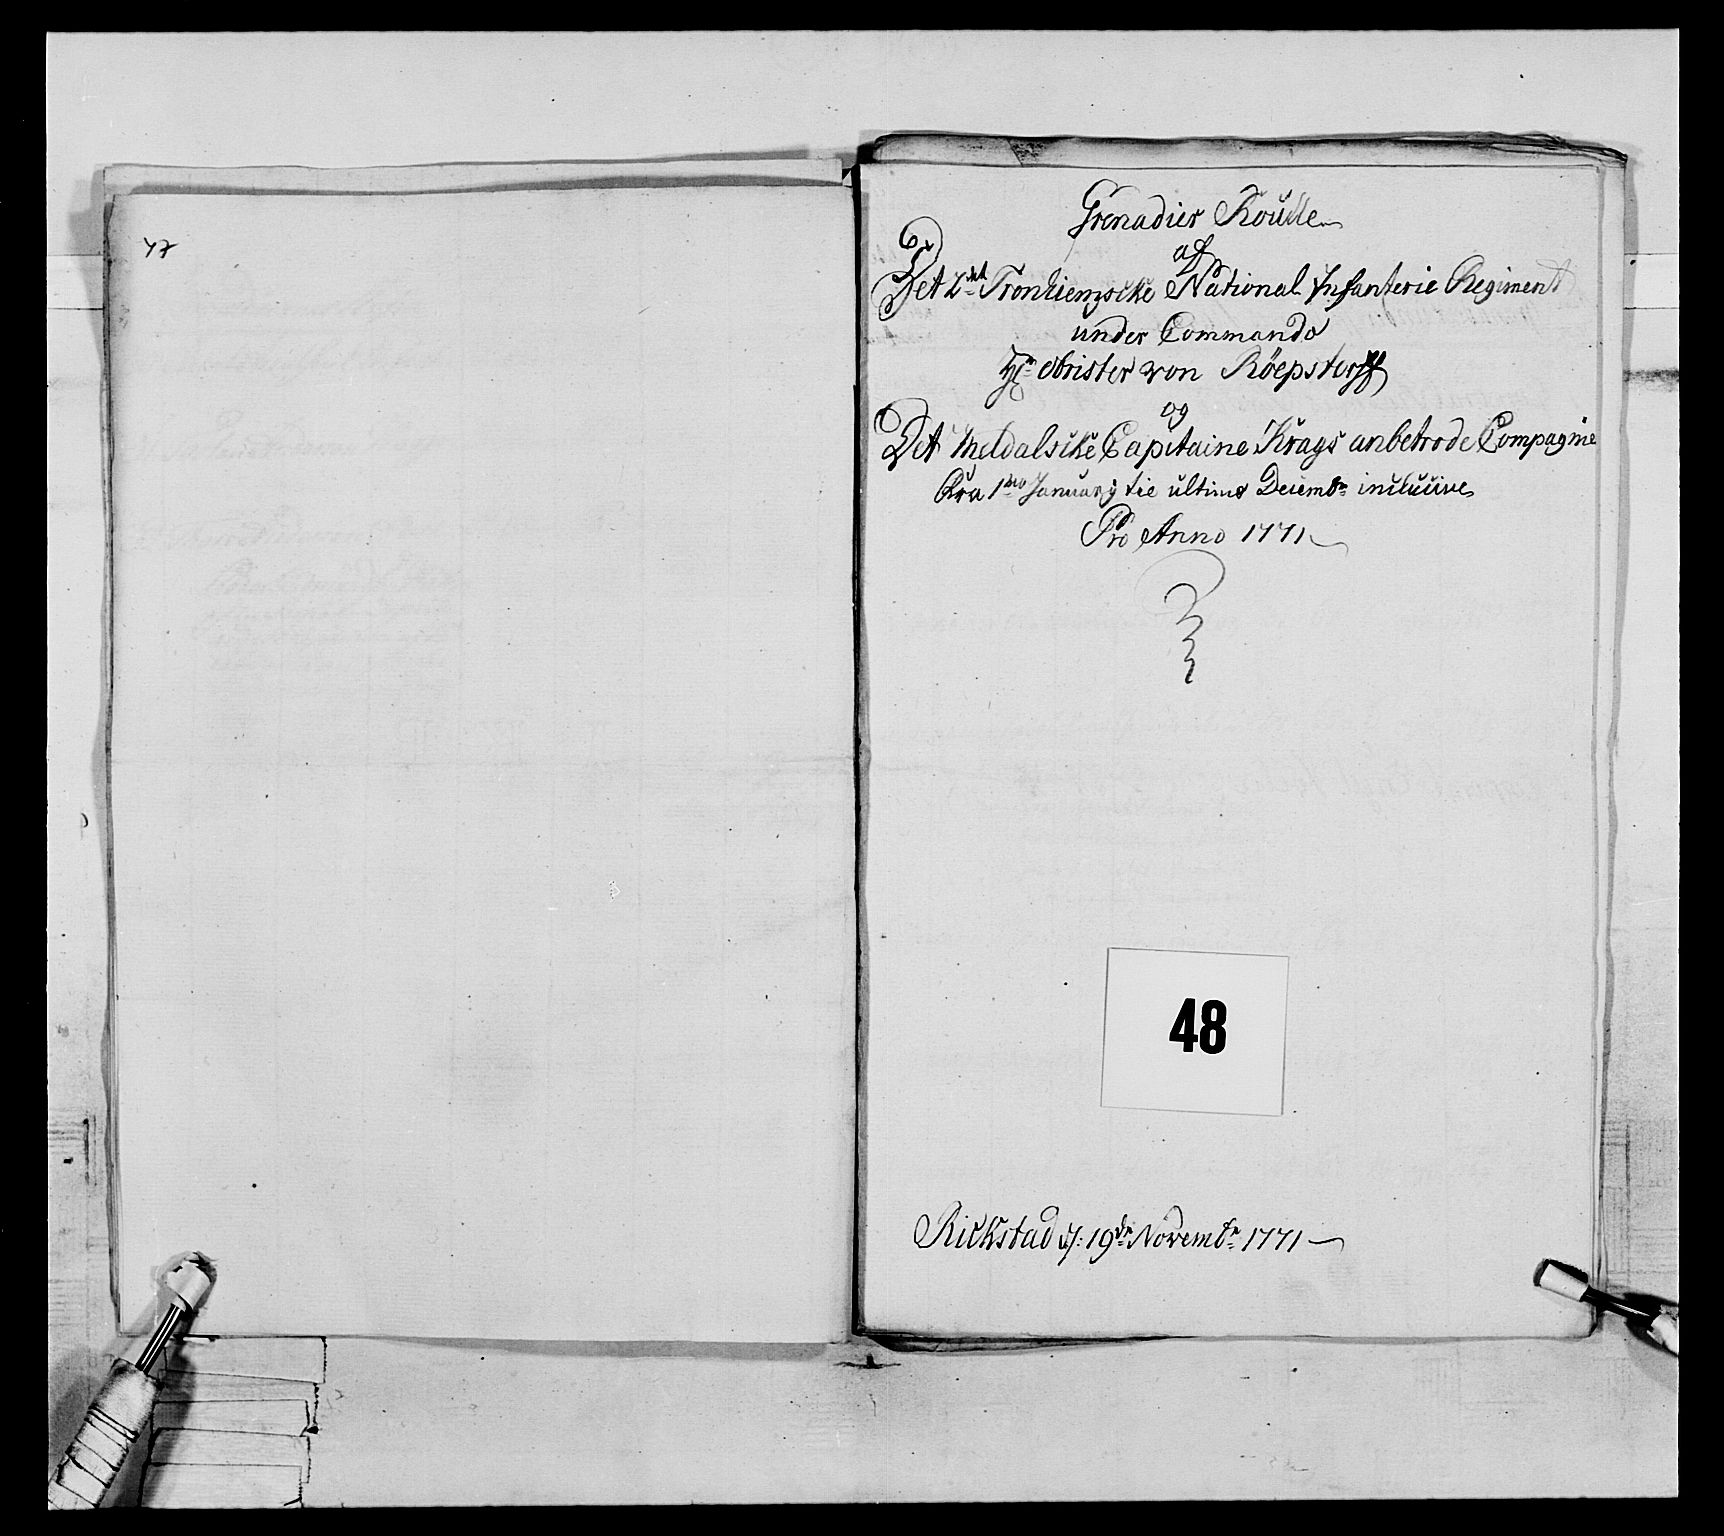 47
Grenadier Roulle
af
Det 2det Tronhiemsche National Infanterie Regiment
under Commando
Hr Obrister von Röepstorff
og
Det Meldalsche Capitaine Krags anbetrode Compagnie
Fra 1mo January til ultimo Decembr inclusive
Pro Anno 1771
48
Rickstad d: 19de Novembr 1771